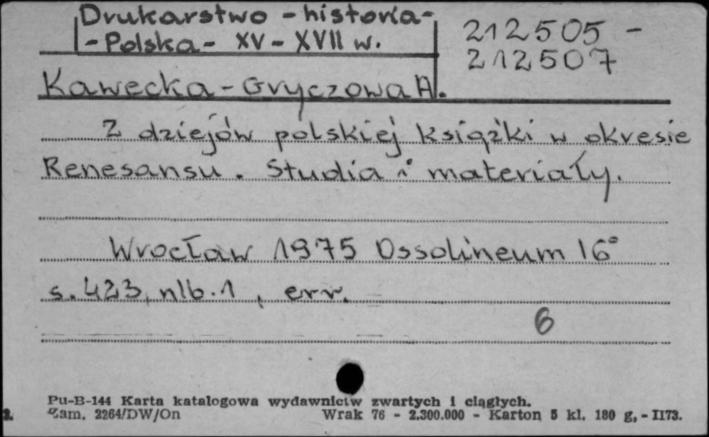 Drukarstwo - historia -
- Polska - XV - XVII w.
212505 -
212507
Kawecka - Gryczowa A.
Z dziejów polskiej książki w okresie
Renesansu. Studia i materiały.
Wrocław 1975 Ossolineum 16°
s. 423, nlb. 1, err.
6
Pu-B-144 Karta katalogowa wydawnictw zwartych i ciągłych.
Zam. 2264/DW/On Wrak 76 - 2.300.000 - Karton 5 kl. 180 g, - II73.